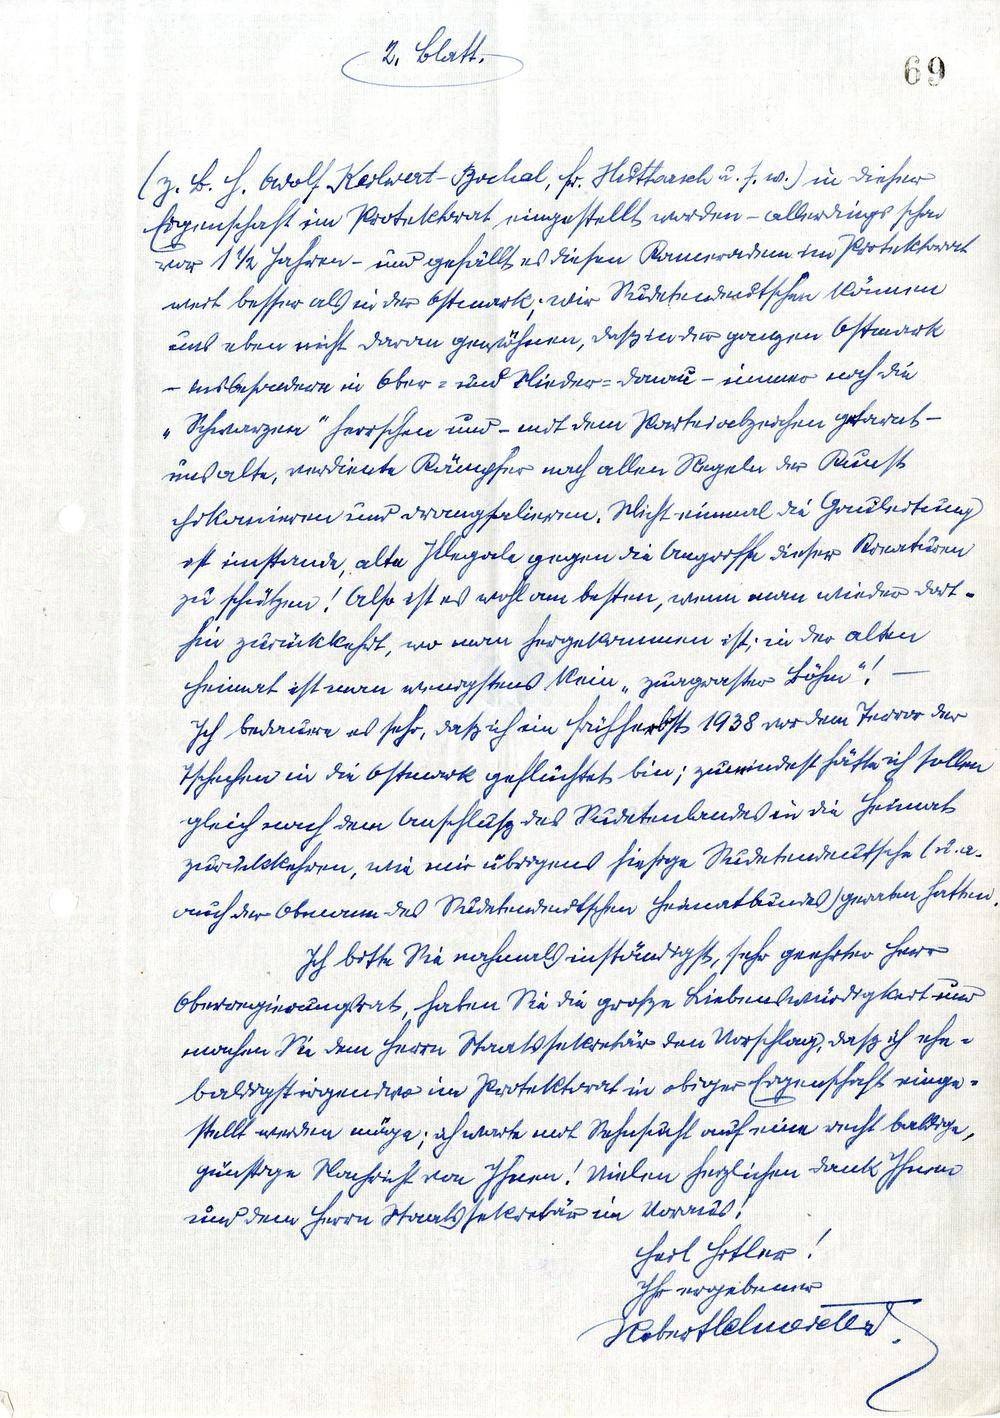 2. Blatt.
69
(z. B. H. Adolf -Bochal, Fr. u. s. w.) in dieser
Eigenschaft im Protektorat eingestellt worden – allerdings schon
vor 1 1/2 Jahren – und gefällt es diesen Kameraden im Protektorat
weit besser als in der Ostmark; wir Sudetendeutschen können
uns eben nicht daran gewöhnen, daß in der ganzen Ostmark
– insbesondere in Ober= und Nieder=Donau – immer noch die
„Schwarzen" herrschen und – mit dem Parteiabzeichen getarnt –
uns alte, verdiente Kämpfer nach allen Regeln der Kunst
schikanieren und drangsalieren. Nicht einmal die Gauleitung
ist imstande, alte Illegale gegen die Angriffe dieser Kreaturen
zu schützen! Also ist es wohl am besten, wenn man wieder dort-
hin zurückkehrt, wo man hergekommen ist; in der alten
Heimat ist man wenigstens kein „zuagraster Böhm"! —
Ich bedauere es sehr, daß ich im Frühherbst 1938 vor dem Terror der
Tschechen in die Ostmark geflüchtet bin; zumindest hätte ich sollen
gleich nach dem Anschluß des Sudetenlandes in die Heimat
zurückkehren, wie mir übrigens hiesige Sudetendeutsche (u. a.
auch der Obmann des Sudetendeutschen Heimatbundes) geraten hatten.
Ich bitte Sie nochmals inständigst, sehr geehrter Herr
Oberregierungsrat, haben Sie die große Liebenswürdigkeit und
machen Sie dem Herrn Staatssekretär den Vorschlag, daß ich ehe-
baldigst irgendwo im Protektorat in obiger Eigenschaft einge-
stellt werden möge; ich warte mit Sehnsucht auf eine recht baldige,
günstige Nachricht von Ihnen! Vielen herzlichen Dank Ihnen
und dem Herrn Staatssekretär im Voraus!
Heil Hitler!
Ihr ergebener
Robert